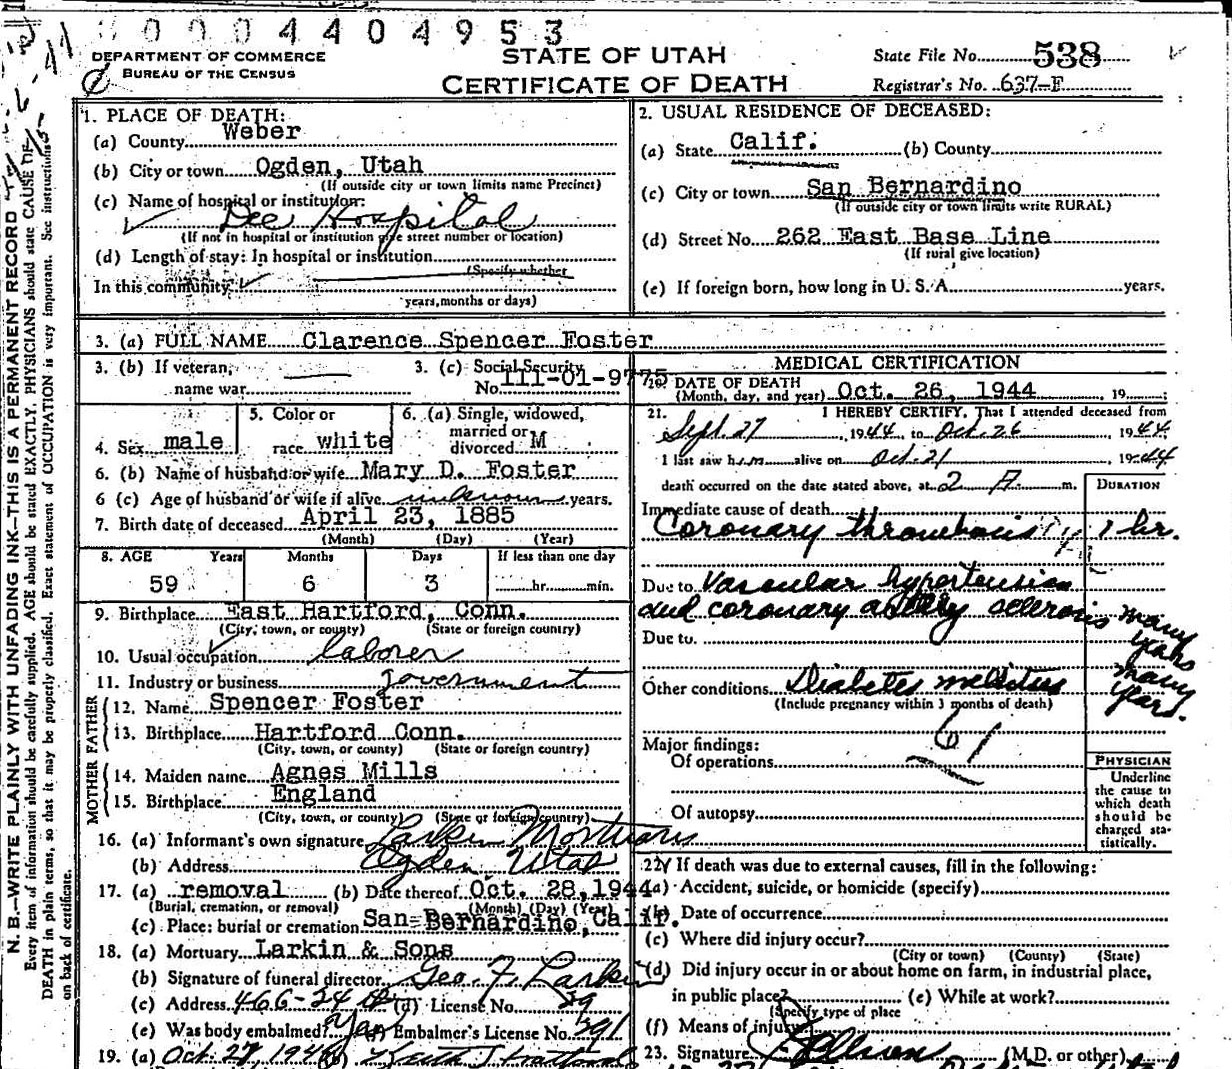 0004404953
DEPARTMENT OF COMMERCE
BUREAU OF THE CENSUS
STATE OF UTAH
CERTIFICATE OF DEATH
State File No. 538
Registrar's No. 637-F
N. B.—WRITE PLAINLY WITH UNFADING INK—THIS IS A PERMANENT RECORD
Every item of information should be carefully supplied. AGE should be stated EXACTLY. PHYSICIANS should state CAUSE OF
DEATH in plain terms, so that it may be properly classified. Exact statement of OCCUPATION is very important. See instructions
on back of certificate.
1. PLACE OF DEATH:
(a) County Weber
(b) City or town Ogden, Utah
(If outside city or town limits name Precinct)
(c) Name of hospital or institution:
Dee Hospital
(If not in hospital or institution give street number or location)
(d) Length of stay: In hospital or institution
(Specify whether
In this community
years, months or days)
2. USUAL RESIDENCE OF DECEASED:
(a) State Calif. (b) County
(c) City or town San Bernardino
(If outside city or town limits write RURAL)
(d) Street No. 262 East Base Line
(If rural give location)
(e) If foreign born, how long in U. S. A. years.
3. (a) FULL NAME Clarence Spencer Foster
3. (b) If veteran,
name war
3. (c) Social Security
No. 111-01-9775
4. Sex male
5. Color or
race white
6. (a) Single, widowed,
married or
divorced M
6. (b) Name of husband or wife Mary D. Foster
6 (c) Age of husband or wife if alive unknown years.
7. Birth date of deceased April 23, 1885
(Month) (Day) (Year)
8. AGE Years Months Days If less than one day
59 6 3 hr. min.
9. Birthplace East Hartford, Conn.
(City, town, or county) (State or foreign country)
10. Usual occupation laborer
11. Industry or business government
FATHER
12. Name Spencer Foster
13. Birthplace Hartford Conn.
(City, town, or county) (State or foreign country)
MOTHER
14. Maiden name Agnes Mills
15. Birthplace England
(City, town, or county) (State or foreign country)
16. (a) Informant's own signature Larkin Mortuary
(b) Address Ogden Utah
17. (a) removal (b) Date thereof Oct. 28, 1944
(Burial, cremation, or removal) (Month) (Day) (Year)
(c) Place: burial or cremation San Bernardino, Calif.
18. (a) Mortuary Larkin & Sons
(b) Signature of funeral director Geo. F. Larkin
(c) Address 466-24 (d) License No. 29
(e) Was body embalmed? Yes (f) Embalmer's License No. 291
19. (a) Oct 27, 1944 (b)
MEDICAL CERTIFICATION
20. DATE OF DEATH
(Month, day, and year) Oct. 26, 1944 19
21. I HEREBY CERTIFY, That I attended deceased from
Sept. 27, 1944, to Oct. 26, 1944
I last saw him alive on Oct. 21 1944
death occurred on the date stated above, at 2 A m.
DURATION
Immediate cause of death
Coronary thrombosis 1 hr.
Due to Vascular hypertension
and coronary artery sclerosis many years
Due to
Other conditions Diabetes mellitus many years.
(Include pregnancy within 3 months of death)
61
Major findings:
Of operations
Of autopsy
PHYSICIAN
Underline
the cause to
which death
should be
charged sta-
tistically.
22. If death was due to external causes, fill in the following:
(a) Accident, suicide, or homicide (specify)
(b) Date of occurrence
(c) Where did injury occur?
(City or town) (County) (State)
(d) Did injury occur in or about home on farm, in industrial place,
in public place? (e) While at work?
(Specify type of place
(f) Means of injury
23. Signature (M.D. or other)